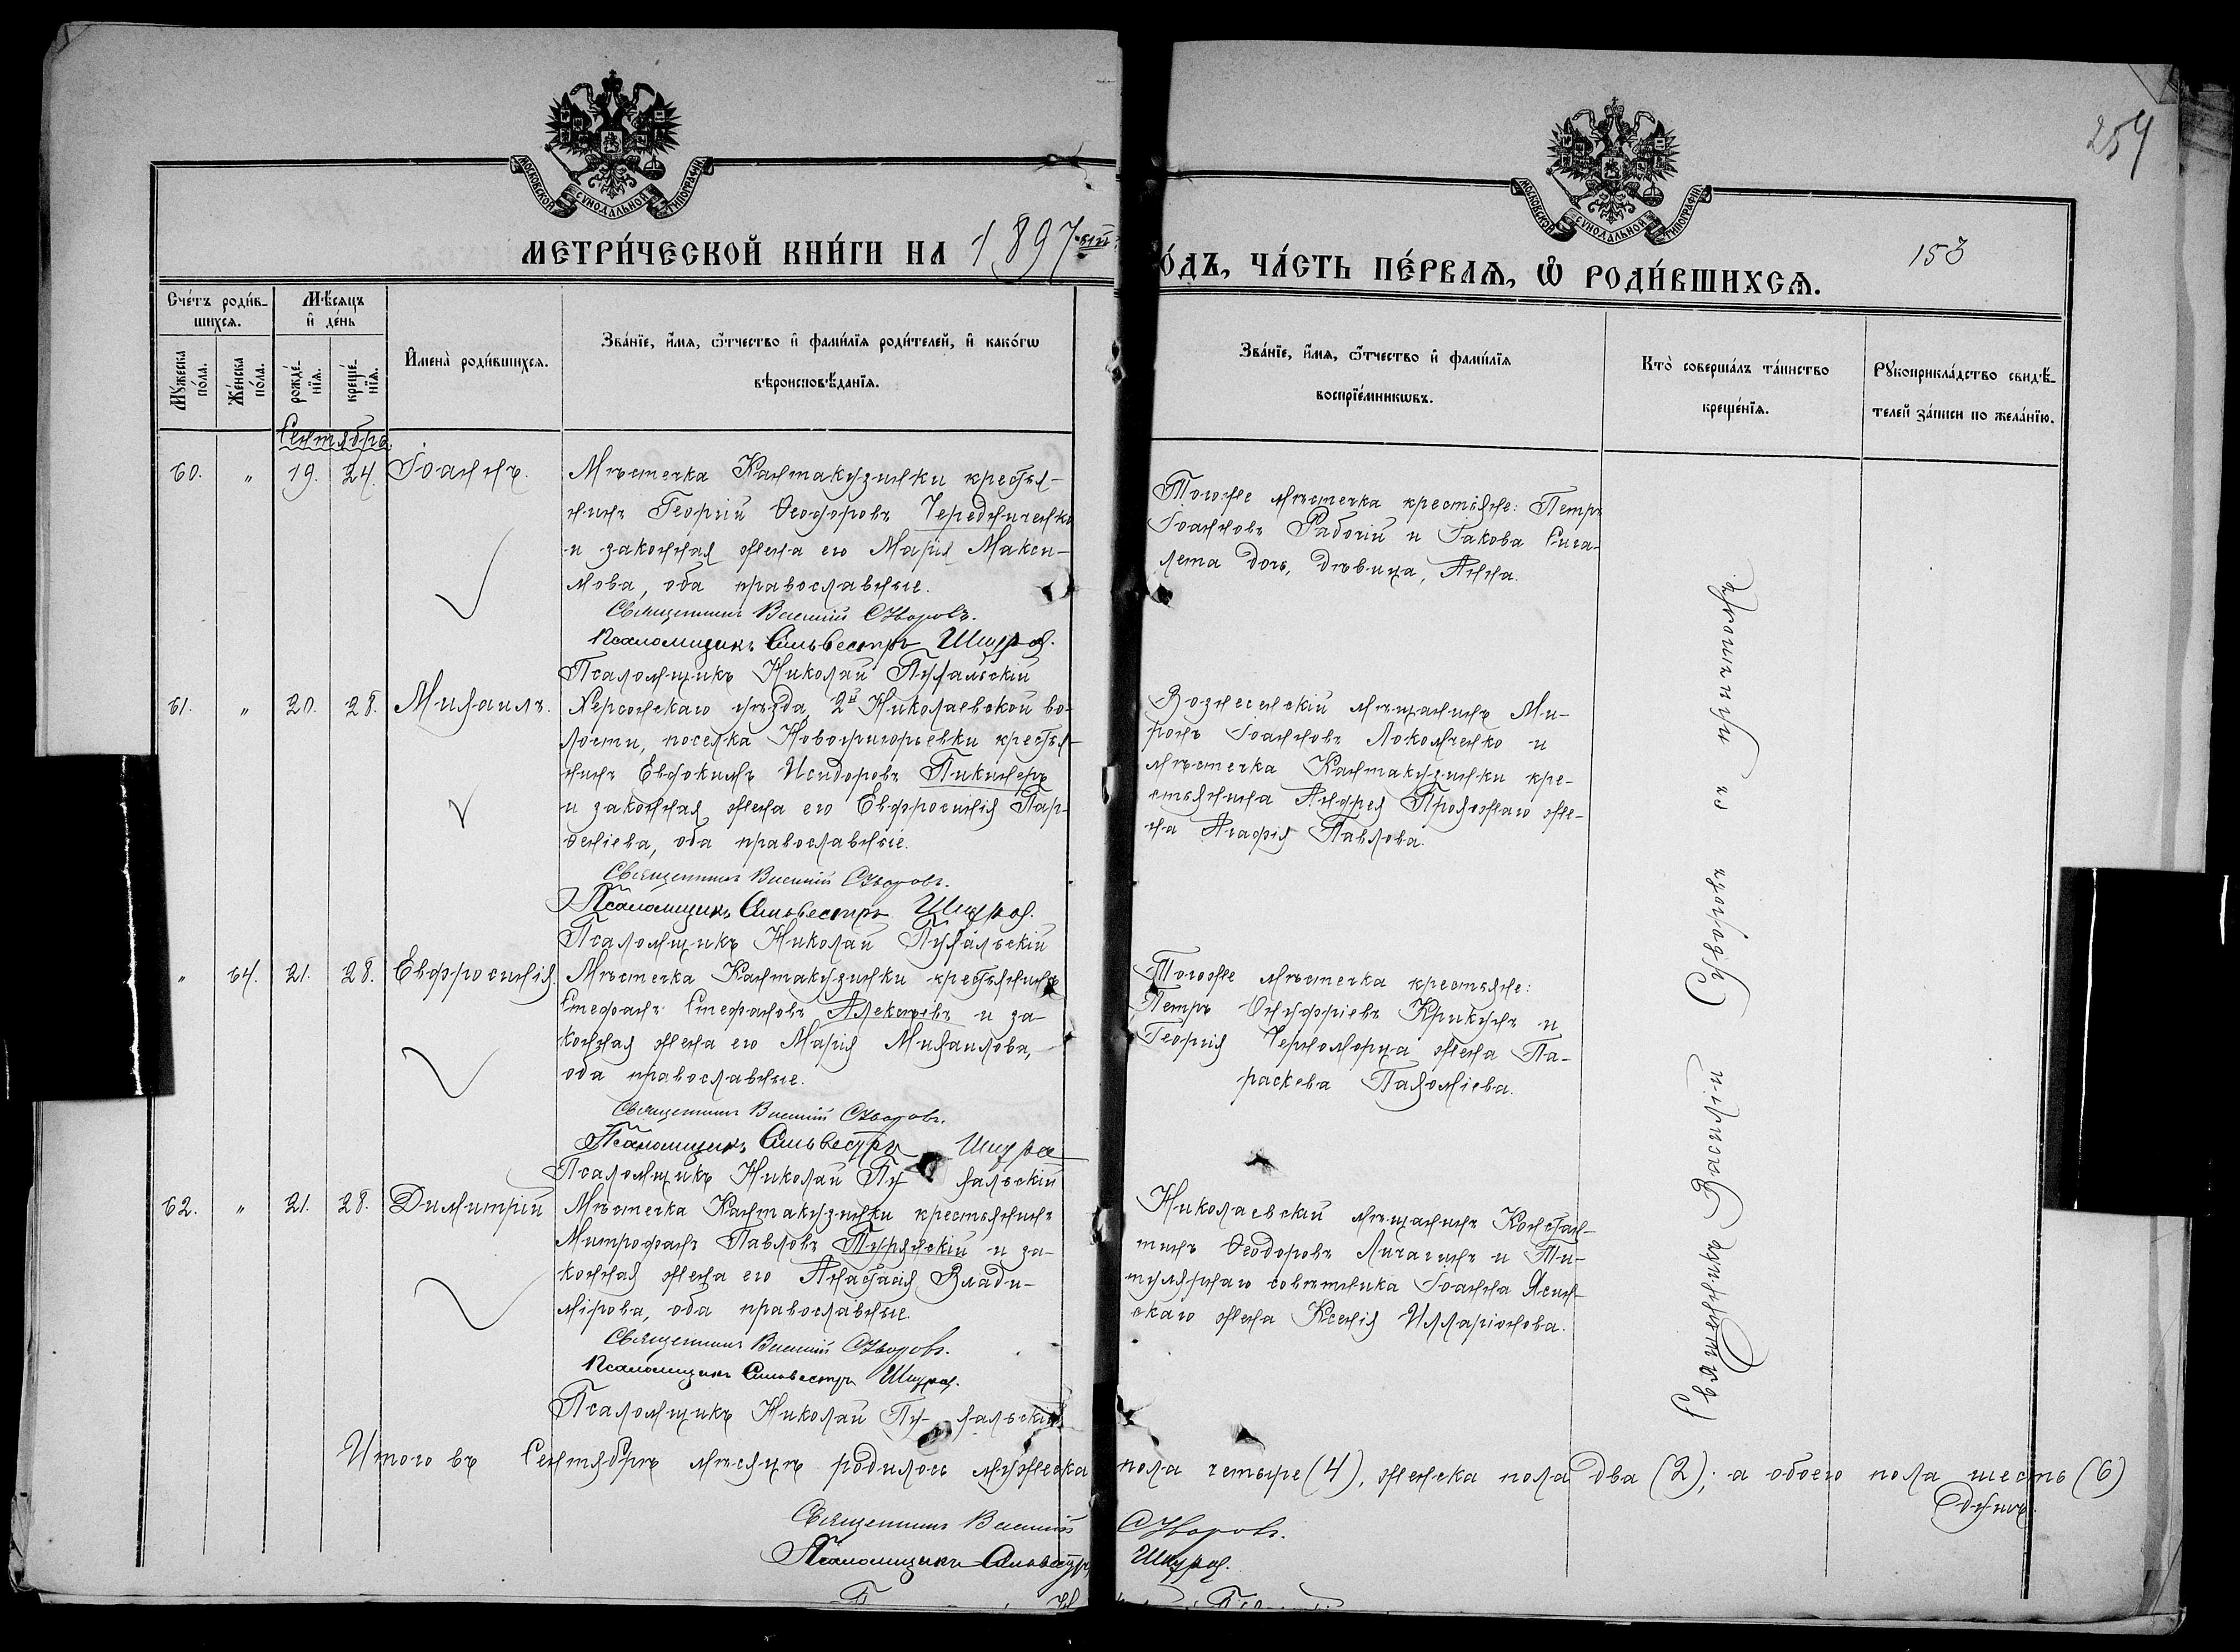 МОСКОВСКОЙ СУНОДАЛЬНОЙ ТИПОГРАФІИ
МОСКОВСКОЙ СУНОДАЛЬНОЙ ТИПОГРАФІИ
254
МЕТРИ́ЧЕСКОЙ КНИ́ГИ НА 1897-ый
О́ДЪ, ЧА́СТЬ ПЕ́РВАѦ, Ѿ РОДИ́ВШИХСѦ.
153
Сче́тъ роди́в-
шихсѧ.
Мѣ́сяцъ
и҆ де́нь
Мꙋ́жеска
по́ла.
Же́нска
по́ла.
рожде́-
нїѧ.
креще́-
нїѧ.
И҆мена̀ роди́вшихсѧ.
Зва́нїе, и҆́мѧ, ѻ҆́тчество и҆ фами́лїѧ роди́телей, и҆ како́гѡ
вѣроисповѣ́данїѧ.
Зва́нїе, и҆́мѧ, ѻ҆́тчество и҆ фами́лїѧ
воспрїе́мникѡвъ.
Кто̀ соверша́лъ та́инство
креще́нїѧ.
Рꙋкоприкла́дство свидѣ́-
телей за́писи по жела́нїю.
Сентября.
60. " 19. 24. Іоаннъ.
Мѣстечка Кантакузинки крестья-
нинъ Георгій Ѳеодоровъ Чередниченко
и законная жена его Марія Макси-
мова, оба православные.
Священникъ Василій
Псаломщикъ Сильвестръ
Псаломщикъ Николай
Тогоже мѣстечка крестьяне: Петръ
Іоанновъ Рабочій и Іакова Сига-
лета дочь, дѣвица, Анна.
61. " 20. 28. Михаилъ.
Херсонскаго уѣзда, 2й Николаевской во-
лости, поселка Новогригорьевки крестья-
нинъ Евдокимъ Исидоровъ Пикинеръ
и законная жена его Евфросинія Пар-
ѳеніева, оба православные.
Священникъ Василій
Псаломщикъ Сильвестръ
Псаломщикъ Николай
Вознесенскій мѣщанинъ Ми-
ронъ Іоанновъ и
мѣстечка Кантакузинки кре-
стьянина Андрея Прохожаго же-
на Агафія Павлова.
" 64. 21. 28. Евфросинія.
Мѣстечка Кантакузинки крестьянинъ
Стефанъ Стефановъ Алексѣевъ и за-
конная жена его Марія Михаилова,
оба православные.
Священникъ Василій
Псаломщикъ Сильвестръ
Псаломщикъ Николай
Тогоже мѣстечка крестьяне:
Петръ Онуфріевъ Крикунъ и
Георгія Черноморца жена Па-
раскева Пахоміева.
62. " 21. 28. Димитрій
Мѣстечка Кантакузинки крестьянинъ
Митрофанъ Павловъ Турянскій и за-
конная жена его Анастасія Влади-
мірова, оба православные.
Священникъ Василій
Псаломщикъ Сильвестръ
Псаломщикъ Николай
Николаевскій мѣщанинъ Констан-
тинъ Ѳеодоровъ Личагинъ и Ти-
тулярнаго совѣтника Іоанна Ясин-
скаго жена Ксенія Илларіонова.
Священникъ Василій
Итого въ Сентябрѣ мѣсяцѣ родилось мужеска пола четыре (4), женска пола два (2); а обоего пола шесть (6)
душъ.
Священникъ Василій
Псаломщикъ Сильвестръ